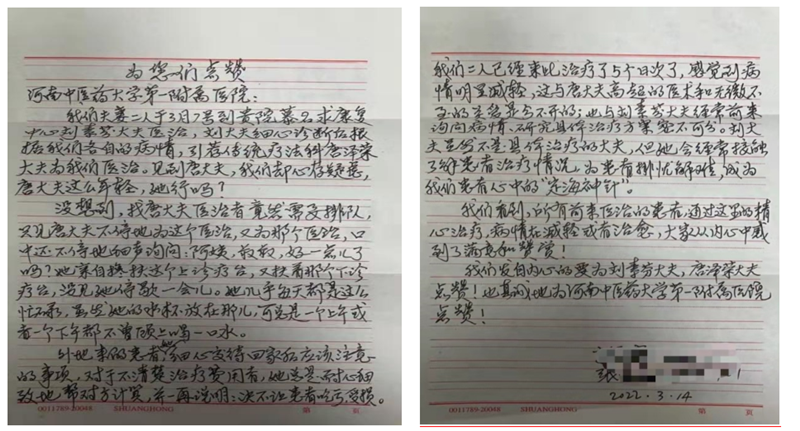 为您们点赞
河南中医药大学第一附属医院：
我们夫妻二人于3月7号到贵院慕名求康复
中心刘素芬大夫医治，刘大夫细心诊断后根
据我们各自的病情，引荐传统疗法科唐泽荣
大夫为我们医治。见到唐大夫，我们却心存疑惑，
唐大夫这么年轻，她行吗？
没想到，找唐大夫医治者竟然需要排队，
又见唐大夫不停地为这个医治，又为那个医治，口
中还不停地细声询问：阿姨、叔叔，好一点儿了
吗？她亲自搀扶这个上诊疗台，又扶着那个下诊
疗台，没见她停歇一会儿。她几乎每天都是这么
忙碌，虽然她的水杯放在那儿，可总是一个上午或
者一个下午都不曾顾上喝一口水。
外地来的患者她细心交待回家后应该注意
的事项，对于不清楚治疗费用者，她总是耐心细
致地帮对方计算，并一再说明：决不让患者吃亏受损。
0011789-20048 SHUANGHONG 第 页
我们二人已经来此治疗了5个日次了，感觉到病
情明显减轻，这与唐大夫高超的医术和无微不
至的关爱是分不开的；也与刘素芬大夫经常前来
询问病情、研究具体治疗方案密不可分。刘大
夫虽然不是具体治疗的大夫，但她会经常接触
了解患者治疗情况，为患者排忧解难，成为
我们患者心中的“定海神针”。
我们看到，所有前来医治的患者，通过这里的精
心治疗，病情在减轻或者治愈，大家从内心中感
到了满意和赞赏！
我们发自内心的要为刘素芬大夫，唐泽荣大夫
点赞！也真诚地为河南中医药大学第一附属医院
点赞！
张
2022.3.14
0011789-20048 SHUANGHONG 第 页